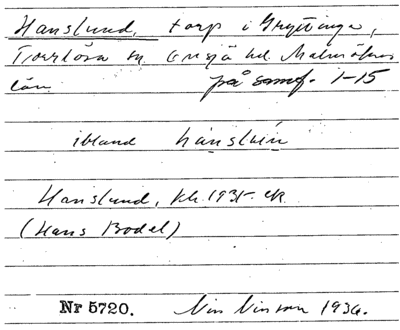 Hanslund, torp i Gryttinge,
Tverlösa sn. Onsjö hd. Malmöhus
län på samf. 1-15
ibland
Hanslund, kh. 1931
(Hans Bodel)
Nr 5720. 1936.